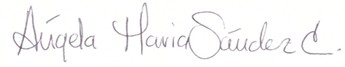 Ángela María Sánchez C.